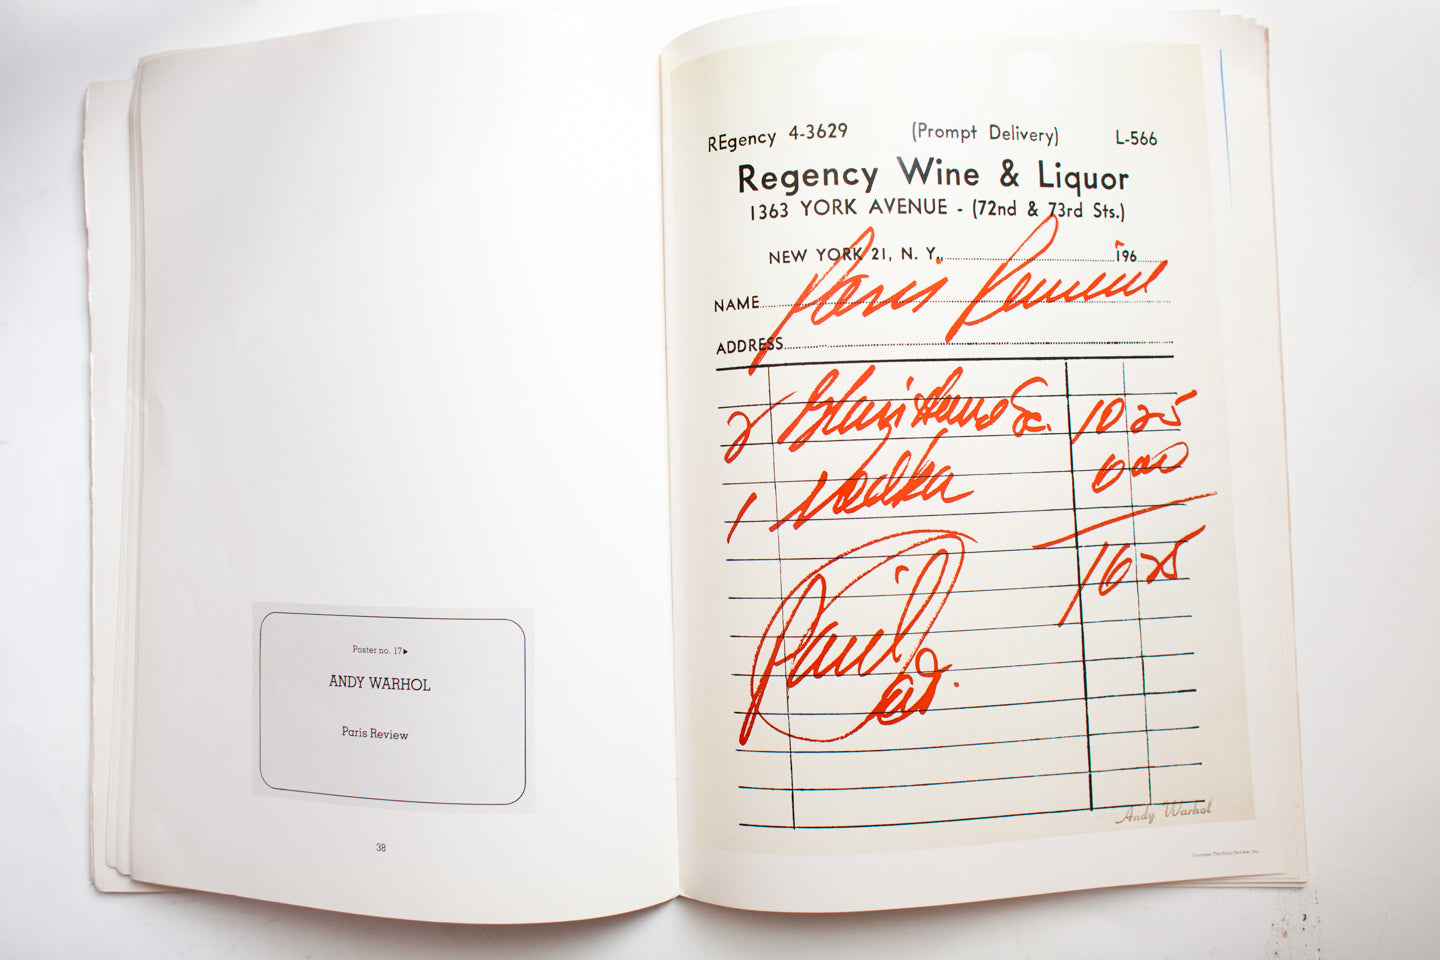 Poster no. 17▸
ANDY WARHOL
Paris Review
38
REgency 4-3629 (Prompt Delivery) L-566
Regency Wine & Liquor
1363 YORK AVENUE - (72nd & 73rd Sts.)
NEW YORK 21, N. Y., 196
NAME Paris Review
ADDRESS
2 10 25
1 Vodka 6 00
16 25
Paid
Andy Warhol
Courtesy The Paris Review, Inc.